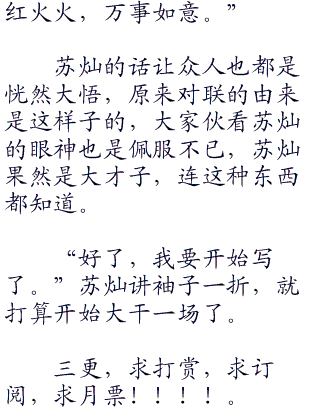 红火火，万事如意。”
苏灿的话让众人也都是
恍然大悟，原来对联的由来
是这样子的，大家伙看苏灿
的眼神也是佩服不已，苏灿
果然是大才子，连这种东西
都知道。
“好了，我要开始写
了。”苏灿讲袖子一折，就
打算开始大干一场了。
三更，求打赏，求订
阅，求月票！！！！。